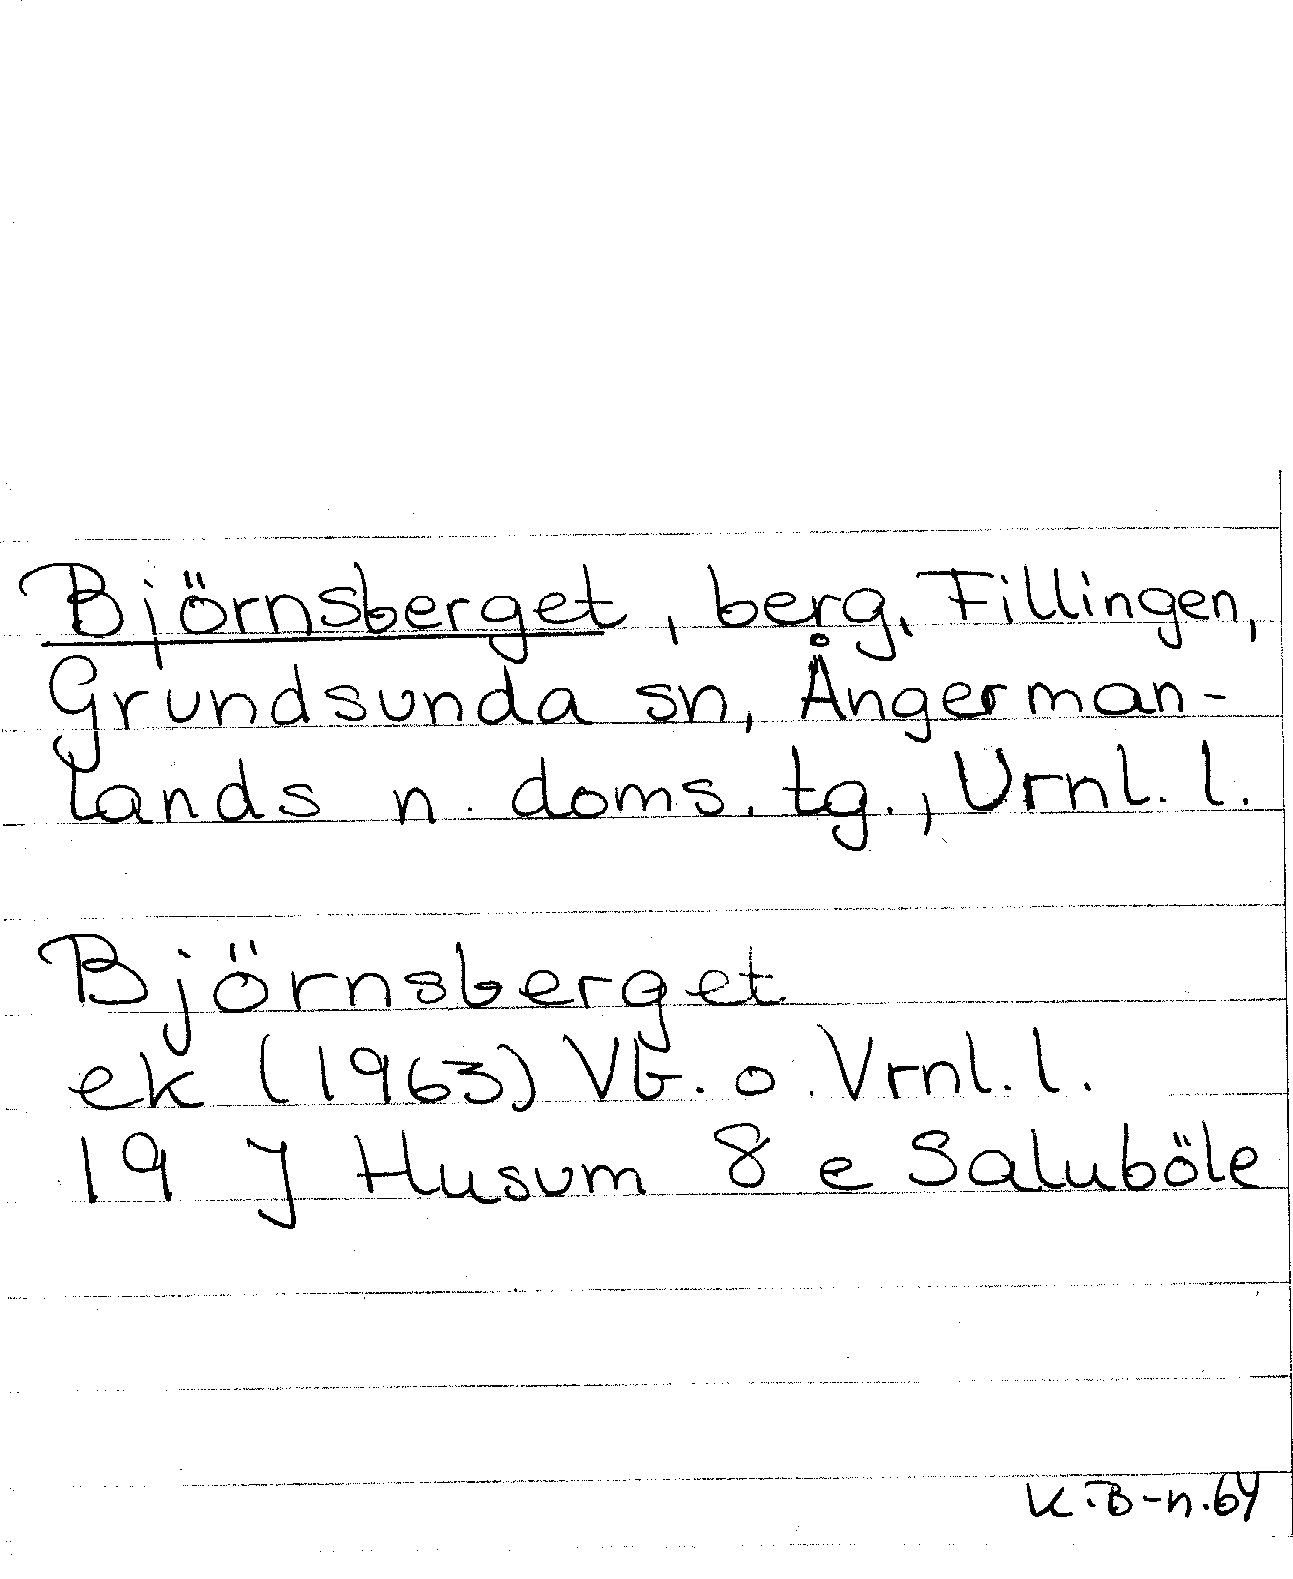 Björnsberget, berg, Fillingen,
Grundsunda sn, Ångerman-
lands n. doms. tg., Vrnl. l.
Björnsberget
ek (1963) Vb. o. Vrnl. l.
19 J Husum 8 e Saluböle
K.B-n.64